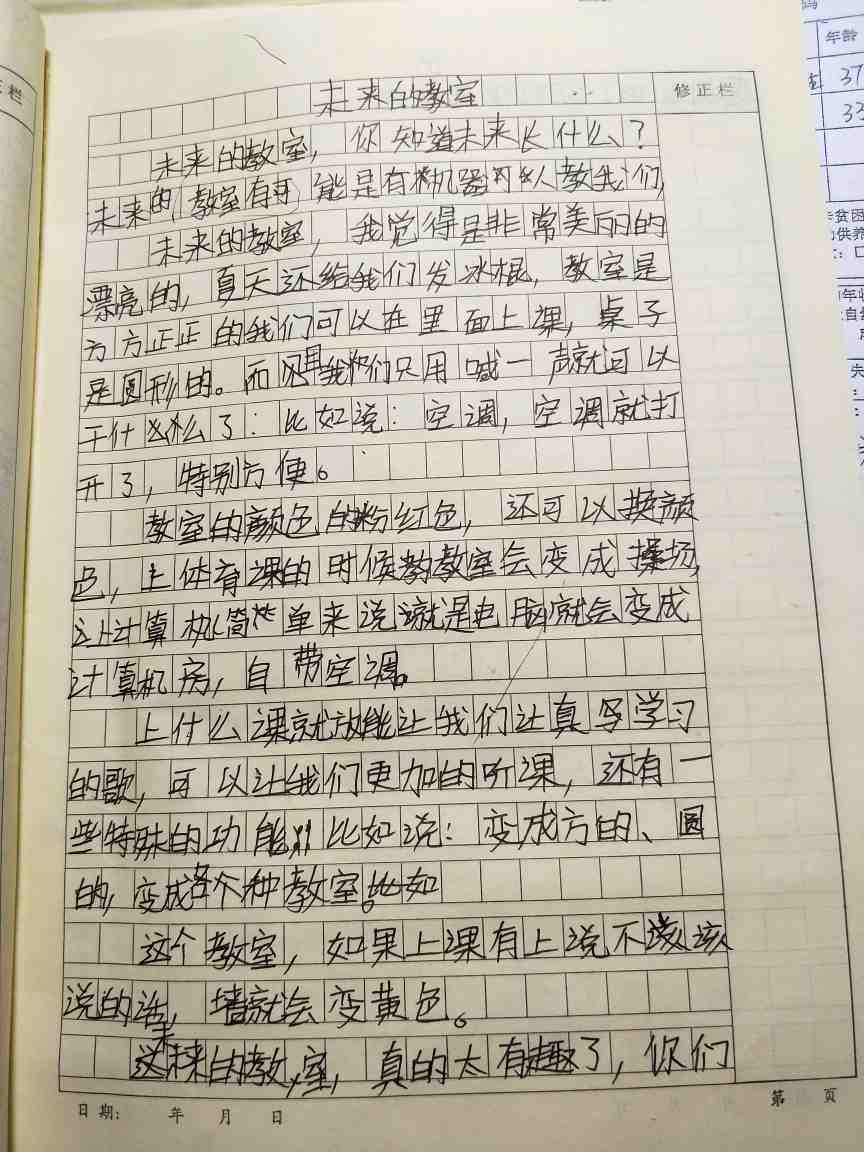 未来的教室
修正栏
未来的教室，你知道未来长什么？
未来的教室有可能是有机器人教我们，
未来的教室，我觉得是非常美丽的
漂亮的，夏天还给我们发冰棍，教室是
方方正正的我们可以在里面上课，桌子
是圆形的。而且我们只用喊一声就可以
干什么了：比如说：空调，空调就打
开了，特别方便。
教室的颜色的粉红色，还可以换颜
色，上体育课的时候教室会变成操场，
上计算机简单来说就是电脑就会变成
计算机房，自带空调。
上什么课就放能让我们认真学习
的歌，可以让我们更加的听课，还有一
些特殊的功能比如说：变成方的、圆
的，变成各个种教室。比如
这个教室，如果上课有上说不该
说的话，墙就会变黄色。
未来的教室，真的太有趣了，你们
日期： 年 月 日
第 页
栏
年龄
37
贫困
供养